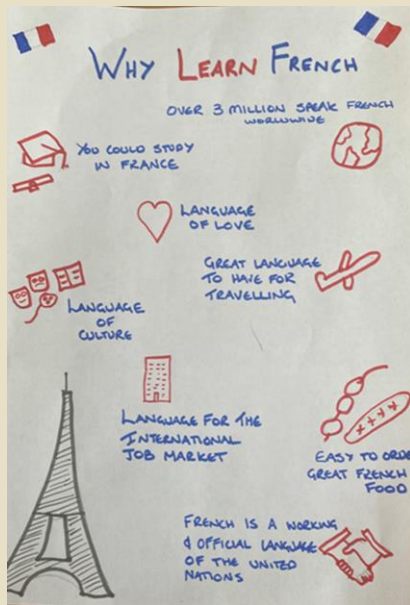 WHY LEARN FRENCH
OVER 3 MILLION SPEAK FRENCH
WORLDWIDE
YOU COULD STUDY
IN FRANCE
LANGUAGE
OF LOVE
GREAT LANGUAGE
TO HAVE FOR
TRAVELLING
LANGUAGE
OF
CULTURE
LANGUAGE FOR THE
INTERNATIONAL
JOB MARKET
EASY TO ORDE
GREAT FRENCH
FOOD
FRENCH IS A WORKING
& OFFICIAL LANGUAGE
OF THE UNITED
NATIONS